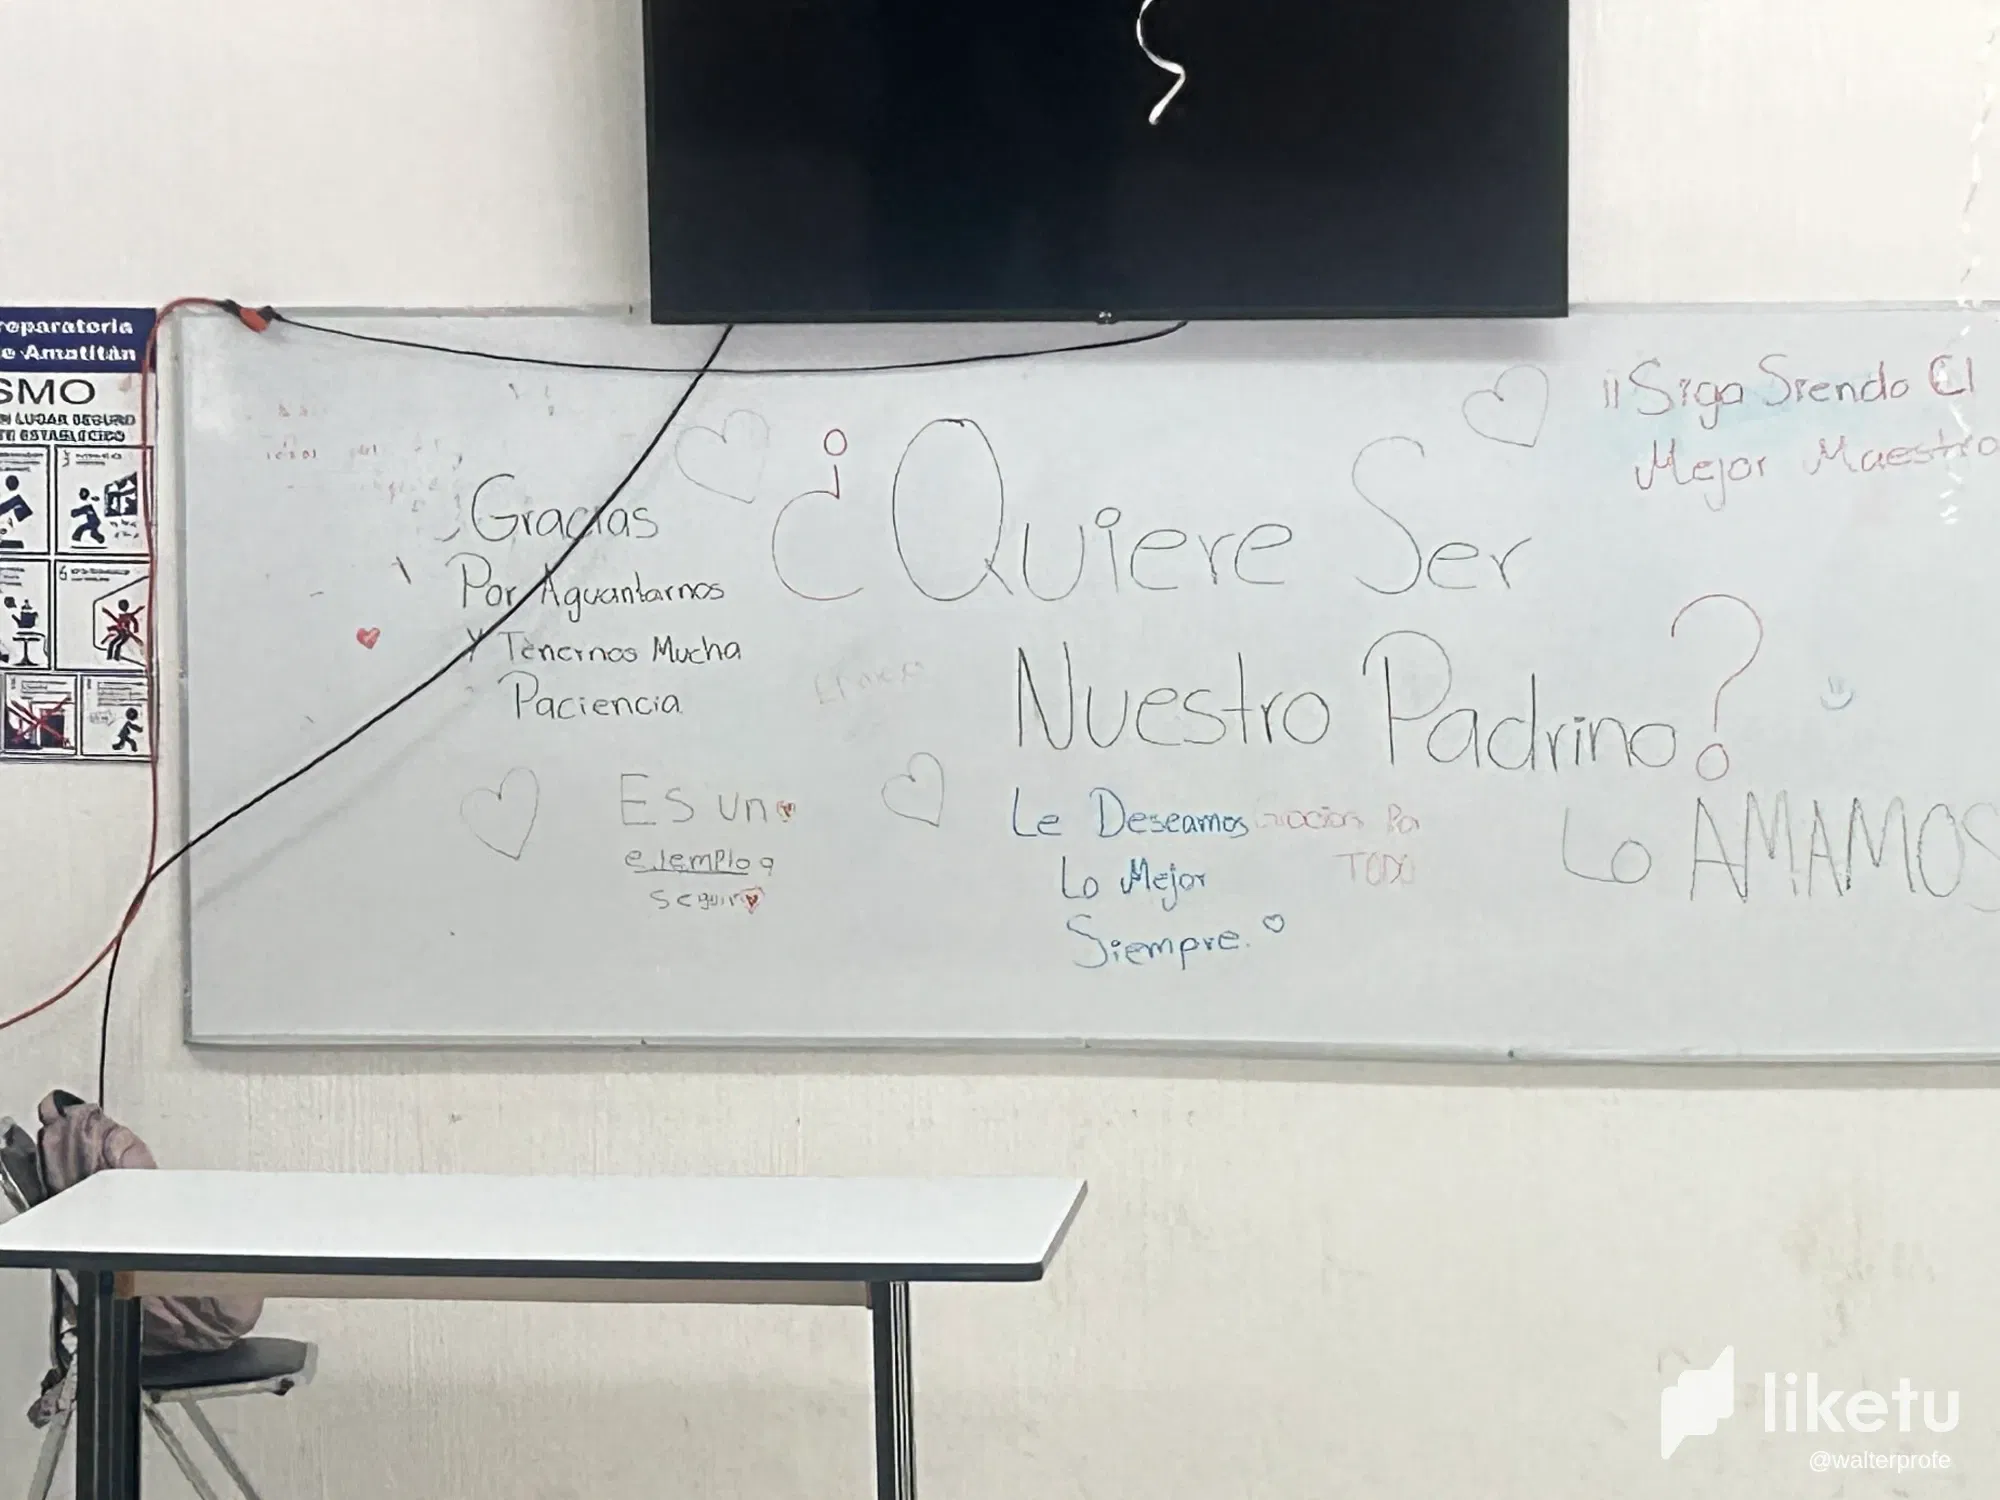 reparatoria
e Amatitán
SMO
LUGAR SEGURO
ESTABLECIDO
Gracias
Por Aguantarnos
Y Tenernos Mucha
Paciencia
Es un
ejemplo a
seguir
¿Quiere Ser
Nuestro Padrino?
Le Deseamos
Lo Mejor
Siempre.
Gracias Por
TODO
¡¡Siga Siendo El
Mejor Maestro
Lo AMAMOS
liketu
@walterprofe